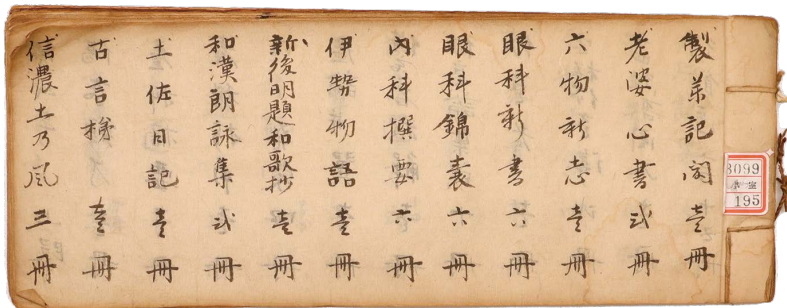 製薬記聞 壱冊
老婆心書 弍冊
六物新志 壱冊
眼科新書 六冊
眼科錦囊 六冊
内科撰要 六冊
伊勢物語 壱冊
新後明題和歌抄 壱冊
和漢朗詠集 弍冊
土佐日記 壱冊
古言梯 壱冊
信濃土乃風 三冊
3099
195